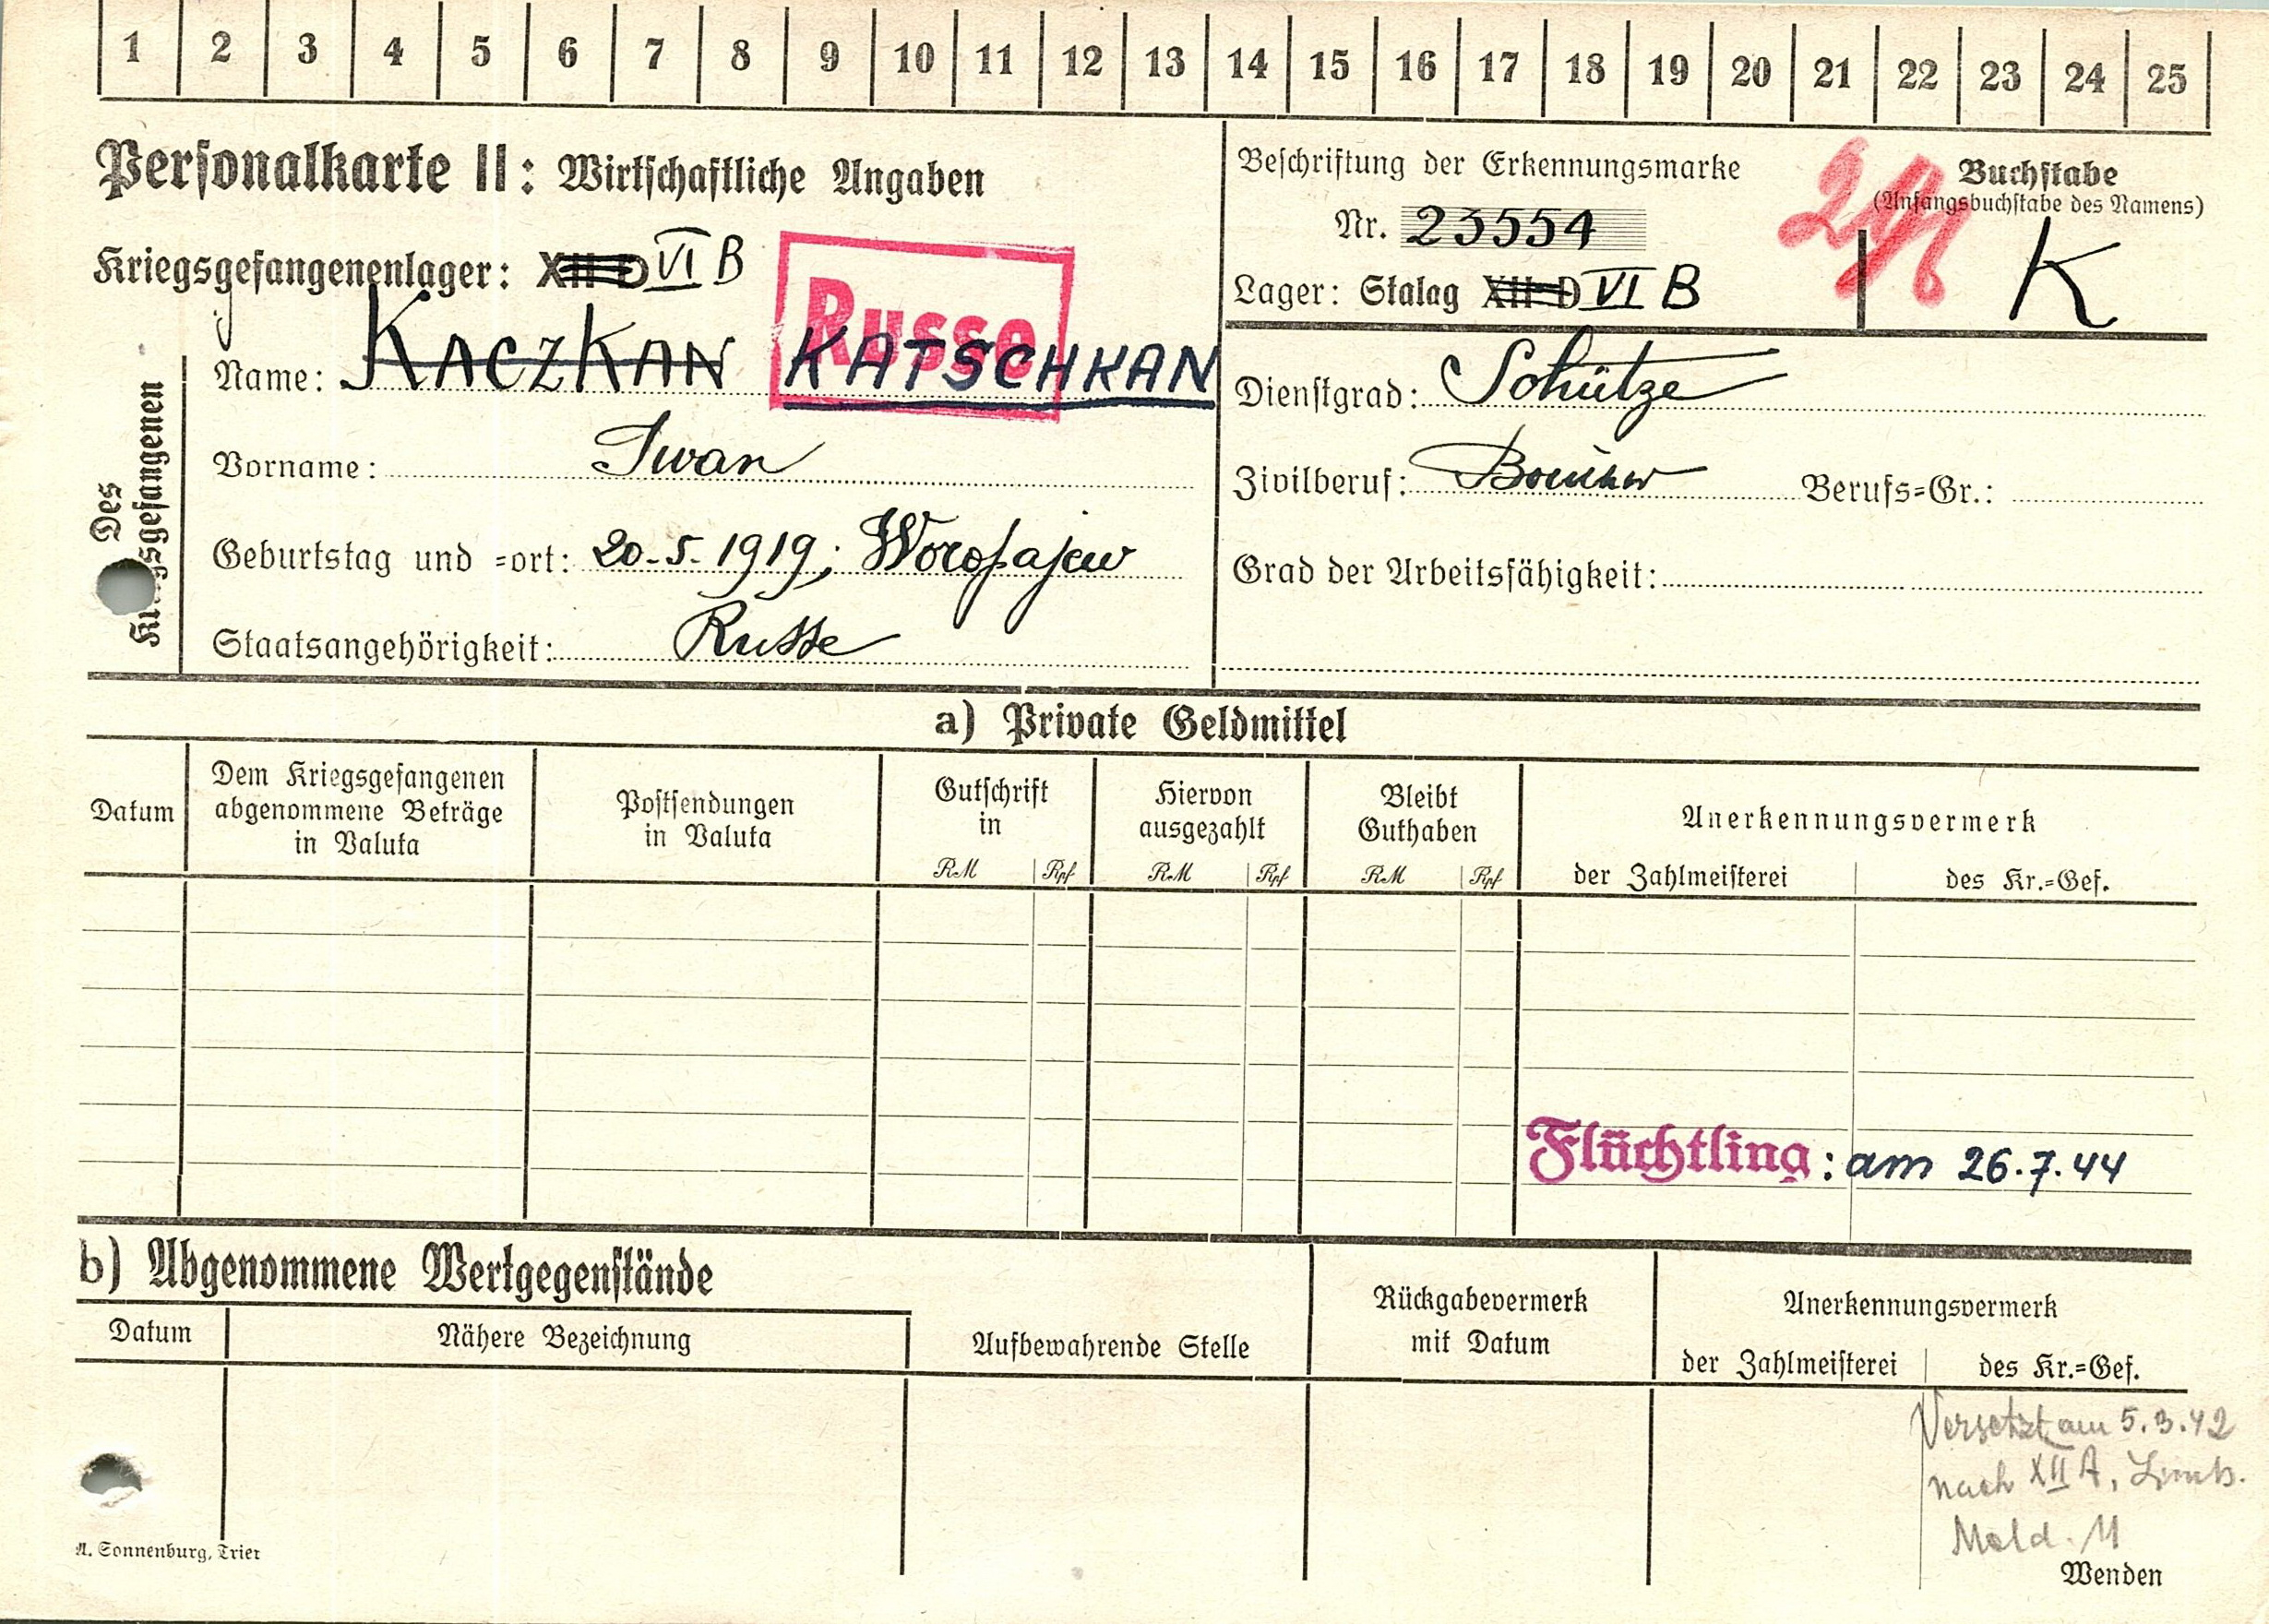 1 2 3 4 5 6 7 8 9 10 11 12 13 14 15 16 17 18 19 20 21 22 23 24 25
Personalkarte II: Wirtschaftliche Angaben
Kriegsgefangenenlager: XII D VI B
Russe
Beschriftung der Erkennungsmarke
Nr. 23554
Lager: Stalag XII D VI B
Buchstabe
(Anfangsbuchstabe des Namens)
K
Des Kriegsgefangenen
Name: KACZKAN KATSCHKAN
Vorname: Iwan
Geburtstag und =ort: 20.5.1919; Woropajew
Staatsangehörigkeit: Russe
Dienstgrad: Schütze
Zivilberuf: Berufs=Gr.:
Grad der Arbeitsfähigkeit:
a) Private Geldmittel
Datum
Dem Kriegsgefangenen
abgenommene Beträge
in Valuta
Postsendungen
in Valuta
Gutschrift
in
RM Rpf
Hiervon
ausgezahlt
RM Rpf
Bleibt
Guthaben
RM Rpf
Anerkennungsvermerk
der Zahlmeisterei des Kr.=Gef.
Flüchtling: am 26.7.44
b) Abgenommene Wertgegenstände
Datum
Nähere Bezeichnung
Aufbewahrende Stelle
Rückgabevermerk
mit Datum
Anerkennungsvermerk
der Zahlmeisterei des Kr.=Gef.
Versetzt am 5.3.42
nach XII A, Limb.
Meld. 11
A. Sonnenburg, Trier
Wenden